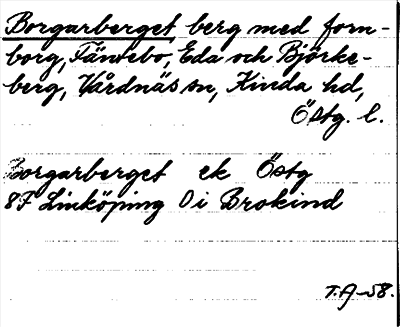 Borgarberget, berg med forn-
borg, Täntebo, Eda och Björke-
berg, Vårdnäs sn, Kinda hd,
Östg. l.
Borgarberget ek Östg
8F Linköping O i Brokind
T.A-58.